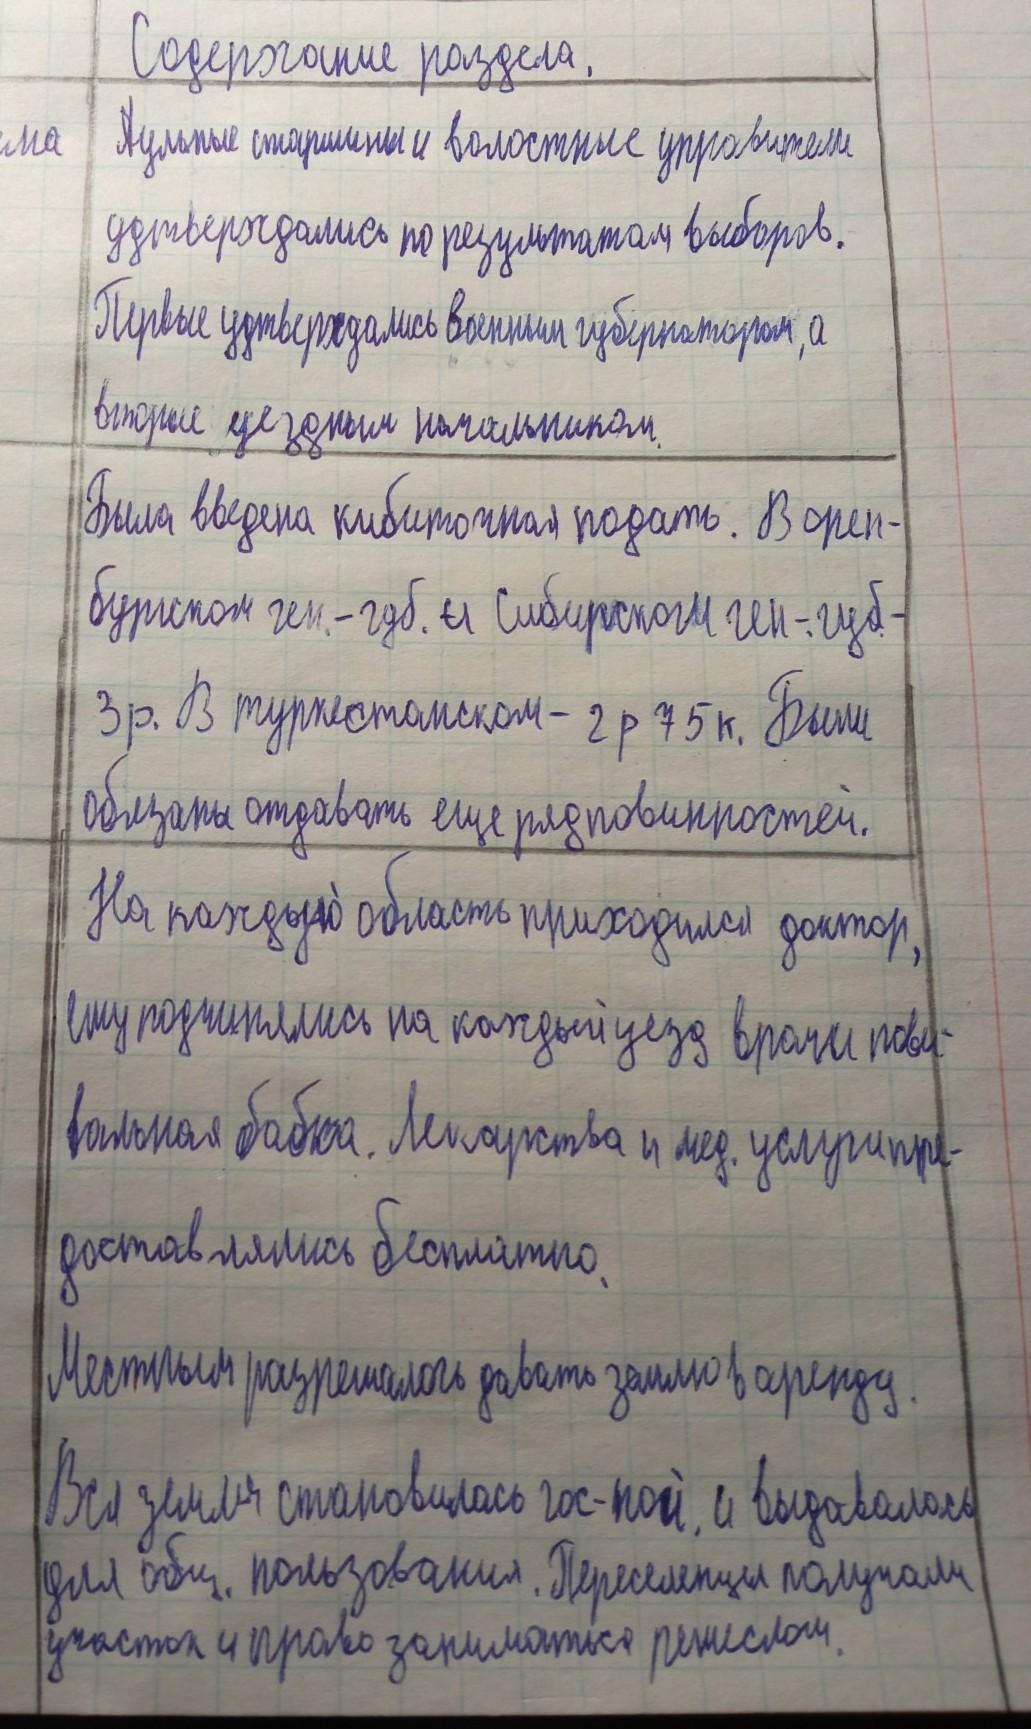 Содержание раздела.
ема Аульные старшины и волостные управители
удтверждались по результатам выборов.
Первые удтверждались военным губернатором, а
вторые уездным начальником.
Была введена кибиточная подать. В орен-
бургском ген.-гдб. и Сибирском ген-губ-
3 р. В туркестанском - 2 р 75 к. Были
обязаны отдавать еще ряд повинностей.
На каждый область приходился доктор,
ему подчинялись на каждый уезд врач и пови-
вальная бабка. Лекарства и мед. услуги пре-
доставлялись бесплатно.
Местным разрешалось давать землю в аренду.
Вся земля становилась гос-ной, и выдавалось
для общ. пользования. Переселенцы получали
участок и право заниматься ремеслом.